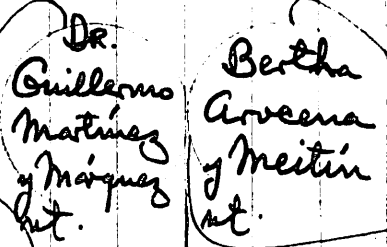 Dr.
Guillermo
Martínez
y Márquez
nt.
Bertha
Arocena
y Meitín
nt.